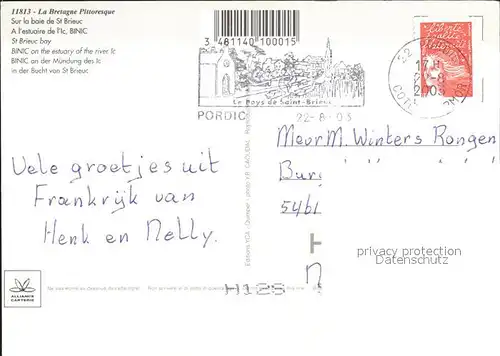 11813 - La Bretagne Pittoresque
Sur la baie de St Brieuc
A l'estuaire de l'Ic, BINIC
St Brieuc bay
BINIC on the estuary of the river Ic
BINIC an der Mündung des Ic
in der Bucht von St Brieuc
3 481140 100015
Le Pays de Saint-Brieuc
PORDIC
22-8-03
Liberté
Egalité
Fraternité
22
17H
22-8
2003
Vele groetjes uit
Frankrijk van
Henk en Nelly.
M. Winters Rongen
Burg
5461
H
privacy protection
Datenschutz
H125
ALLIANCE
CARTERIE